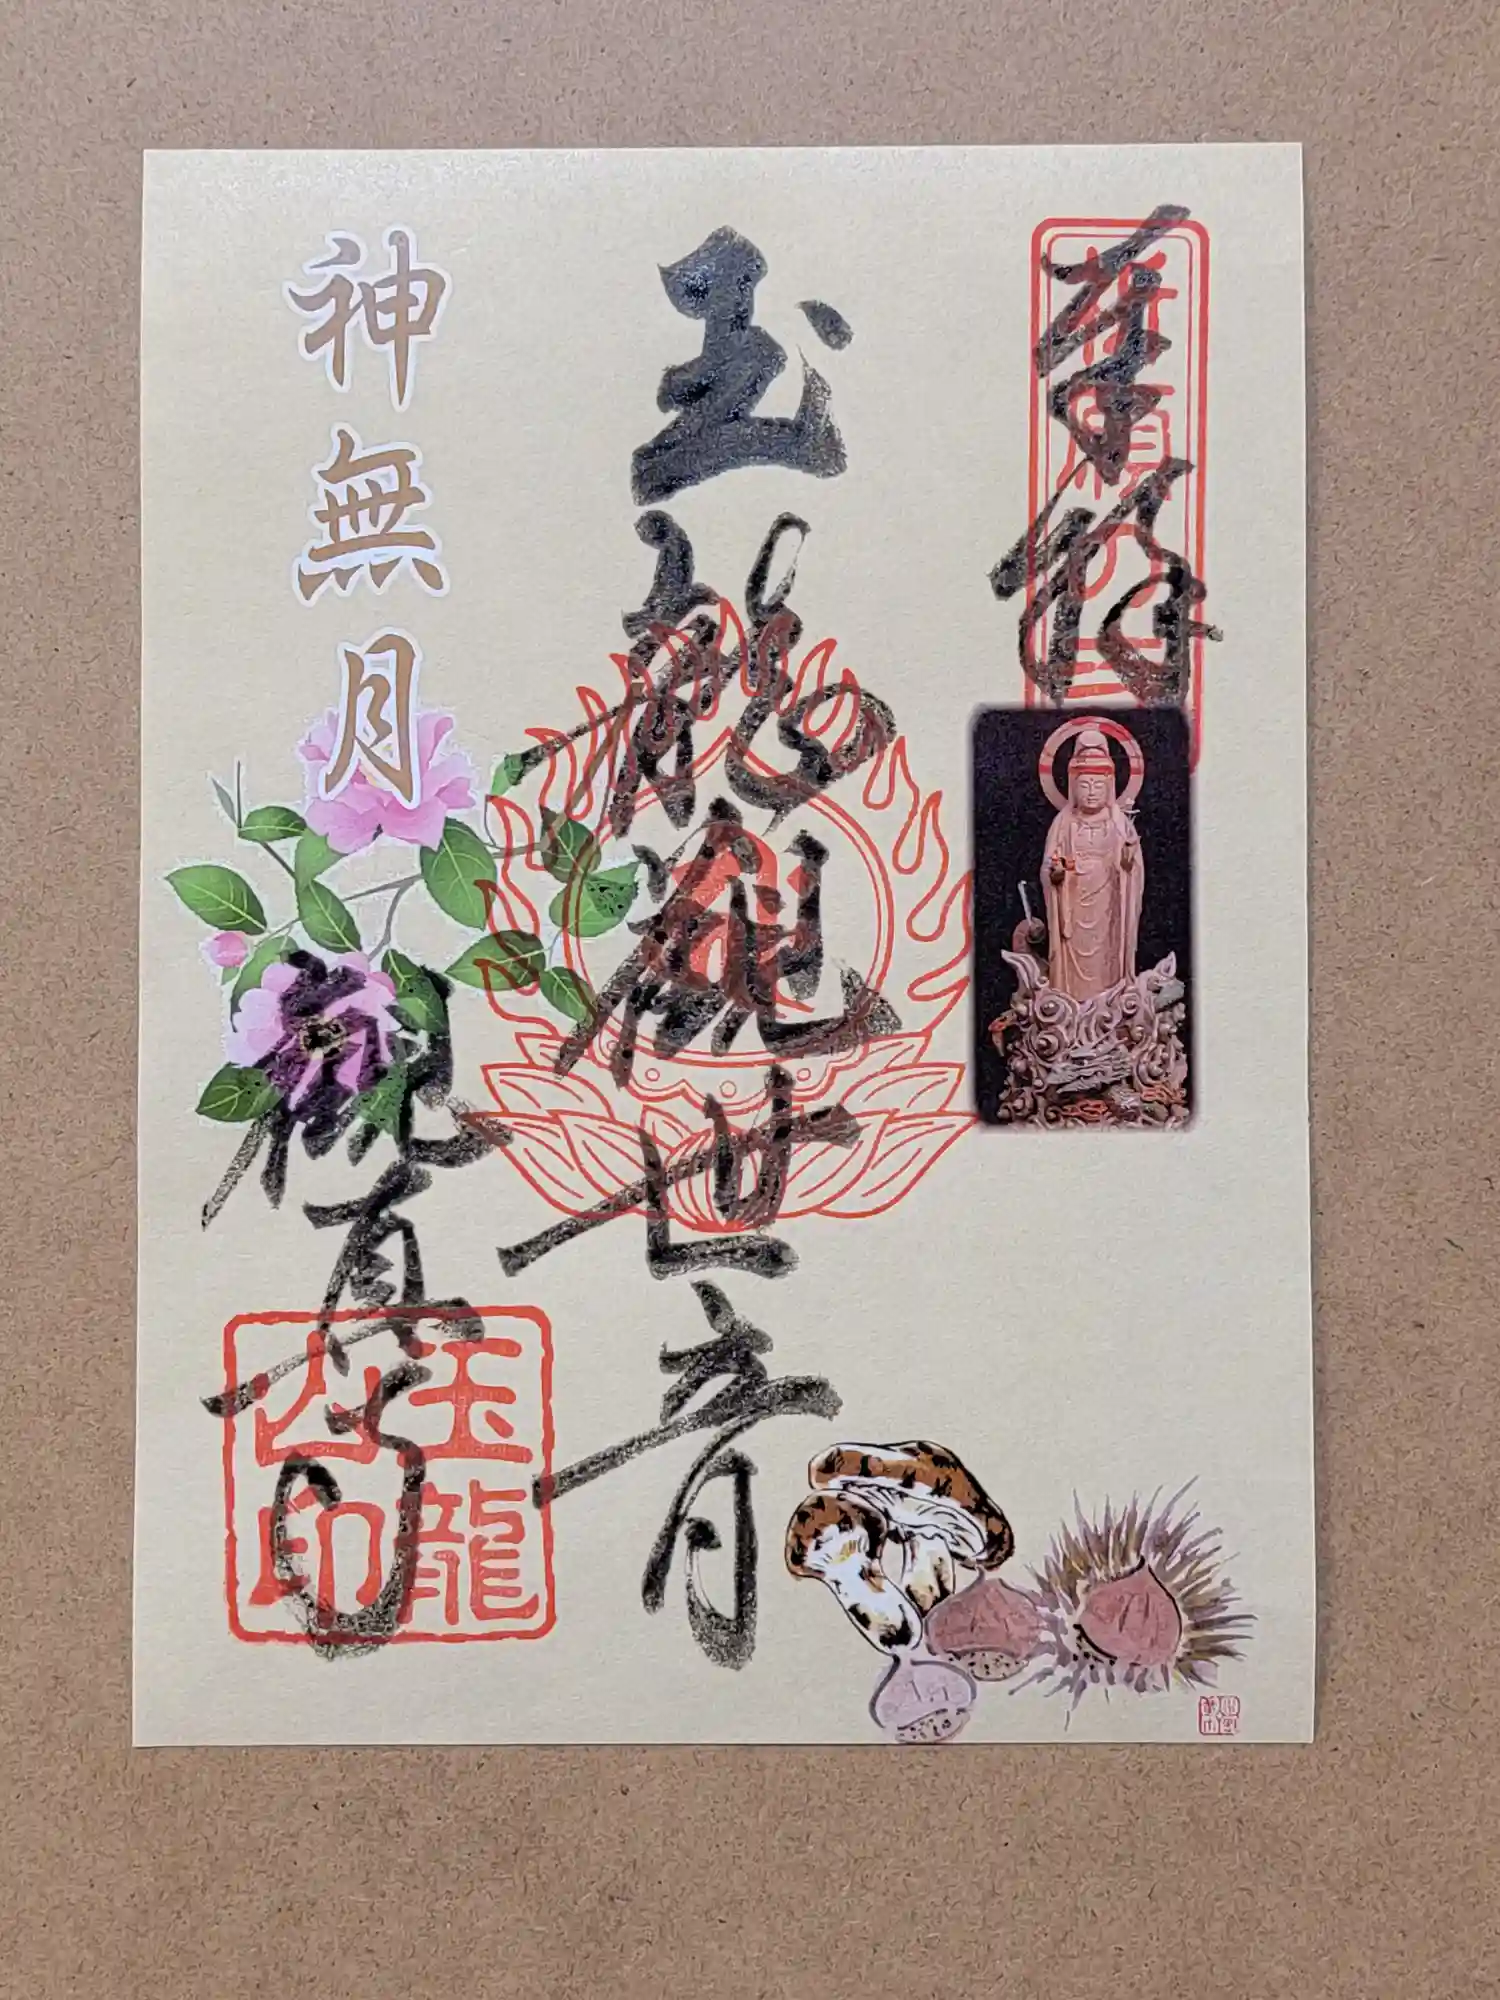 奉拝
玉龍観世音
神無月
観真寺
玉龍
山印